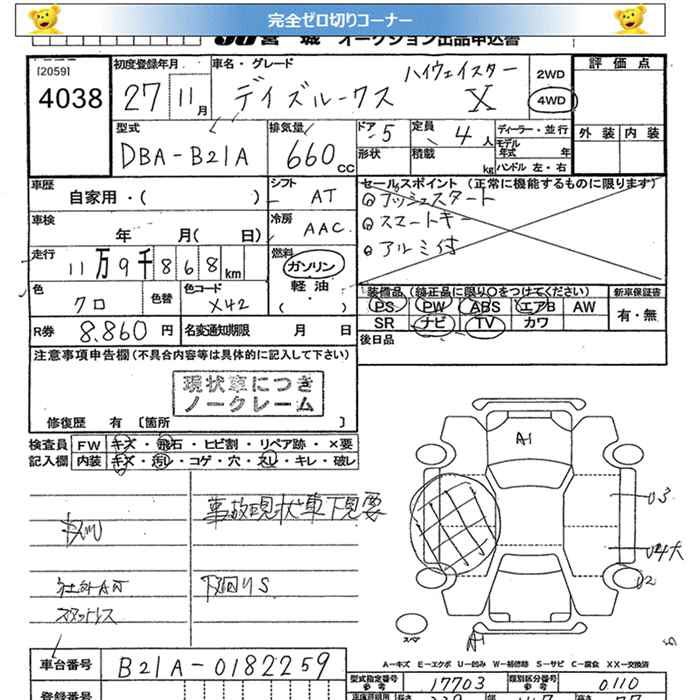 完全ゼロ切りコーナー
JU 宮城 オークション出品申込書
[2059] 初度登録年月 車名・グレード ハイウェイスター 2WD 評価点
4038 27 11月 デイズルークス X 4WD
外装 内装
型式 排気量 ドア 5 定員 4人 ディーラー・並行
DBA-B21A 660 CC 形状 積載 kg モデル年式 年
ハンドル 左・右
車歴 シフト AT セールスポイント (正常に機能するものに限ります)
自家用・( ) プッシュスタート
車検 冷房 AAC スマートキー
年 月( 日) アルミ付
走行 燃料
11万9千868km ガソリン
軽油・( )
色 クロ 色替 色コード X42
装備品 (純正品に限り○をつけてください) 新車保証書
PS PW ABS エアB AW 有・無
R券 8.860円 名変通知期限 月 日 SR ナビ TV カワ
後日品
注意事項申告欄(不具合内容等は具体的に記入して下さい)
現状車につき
ノークレーム
修復歴 有 [箇所 ]
検査員 FW キズ・飛石・ヒビ割・リペア跡・×要
記入欄 内装 キズ・汚レ・コゲ・穴・スレ・キレ・破レ
A1
事故現状車下見要
U3
U4大
U2
社外AW
下回りS
スタットレス
スペア
A1
A-キズ E-エクボ U-凹み W-補修跡 S-サビ C-腐食 XX-交換済
車台番号 B21A-0182259
型式指定番号 参考 17703 類別区分番号 参考 0110
登録番号